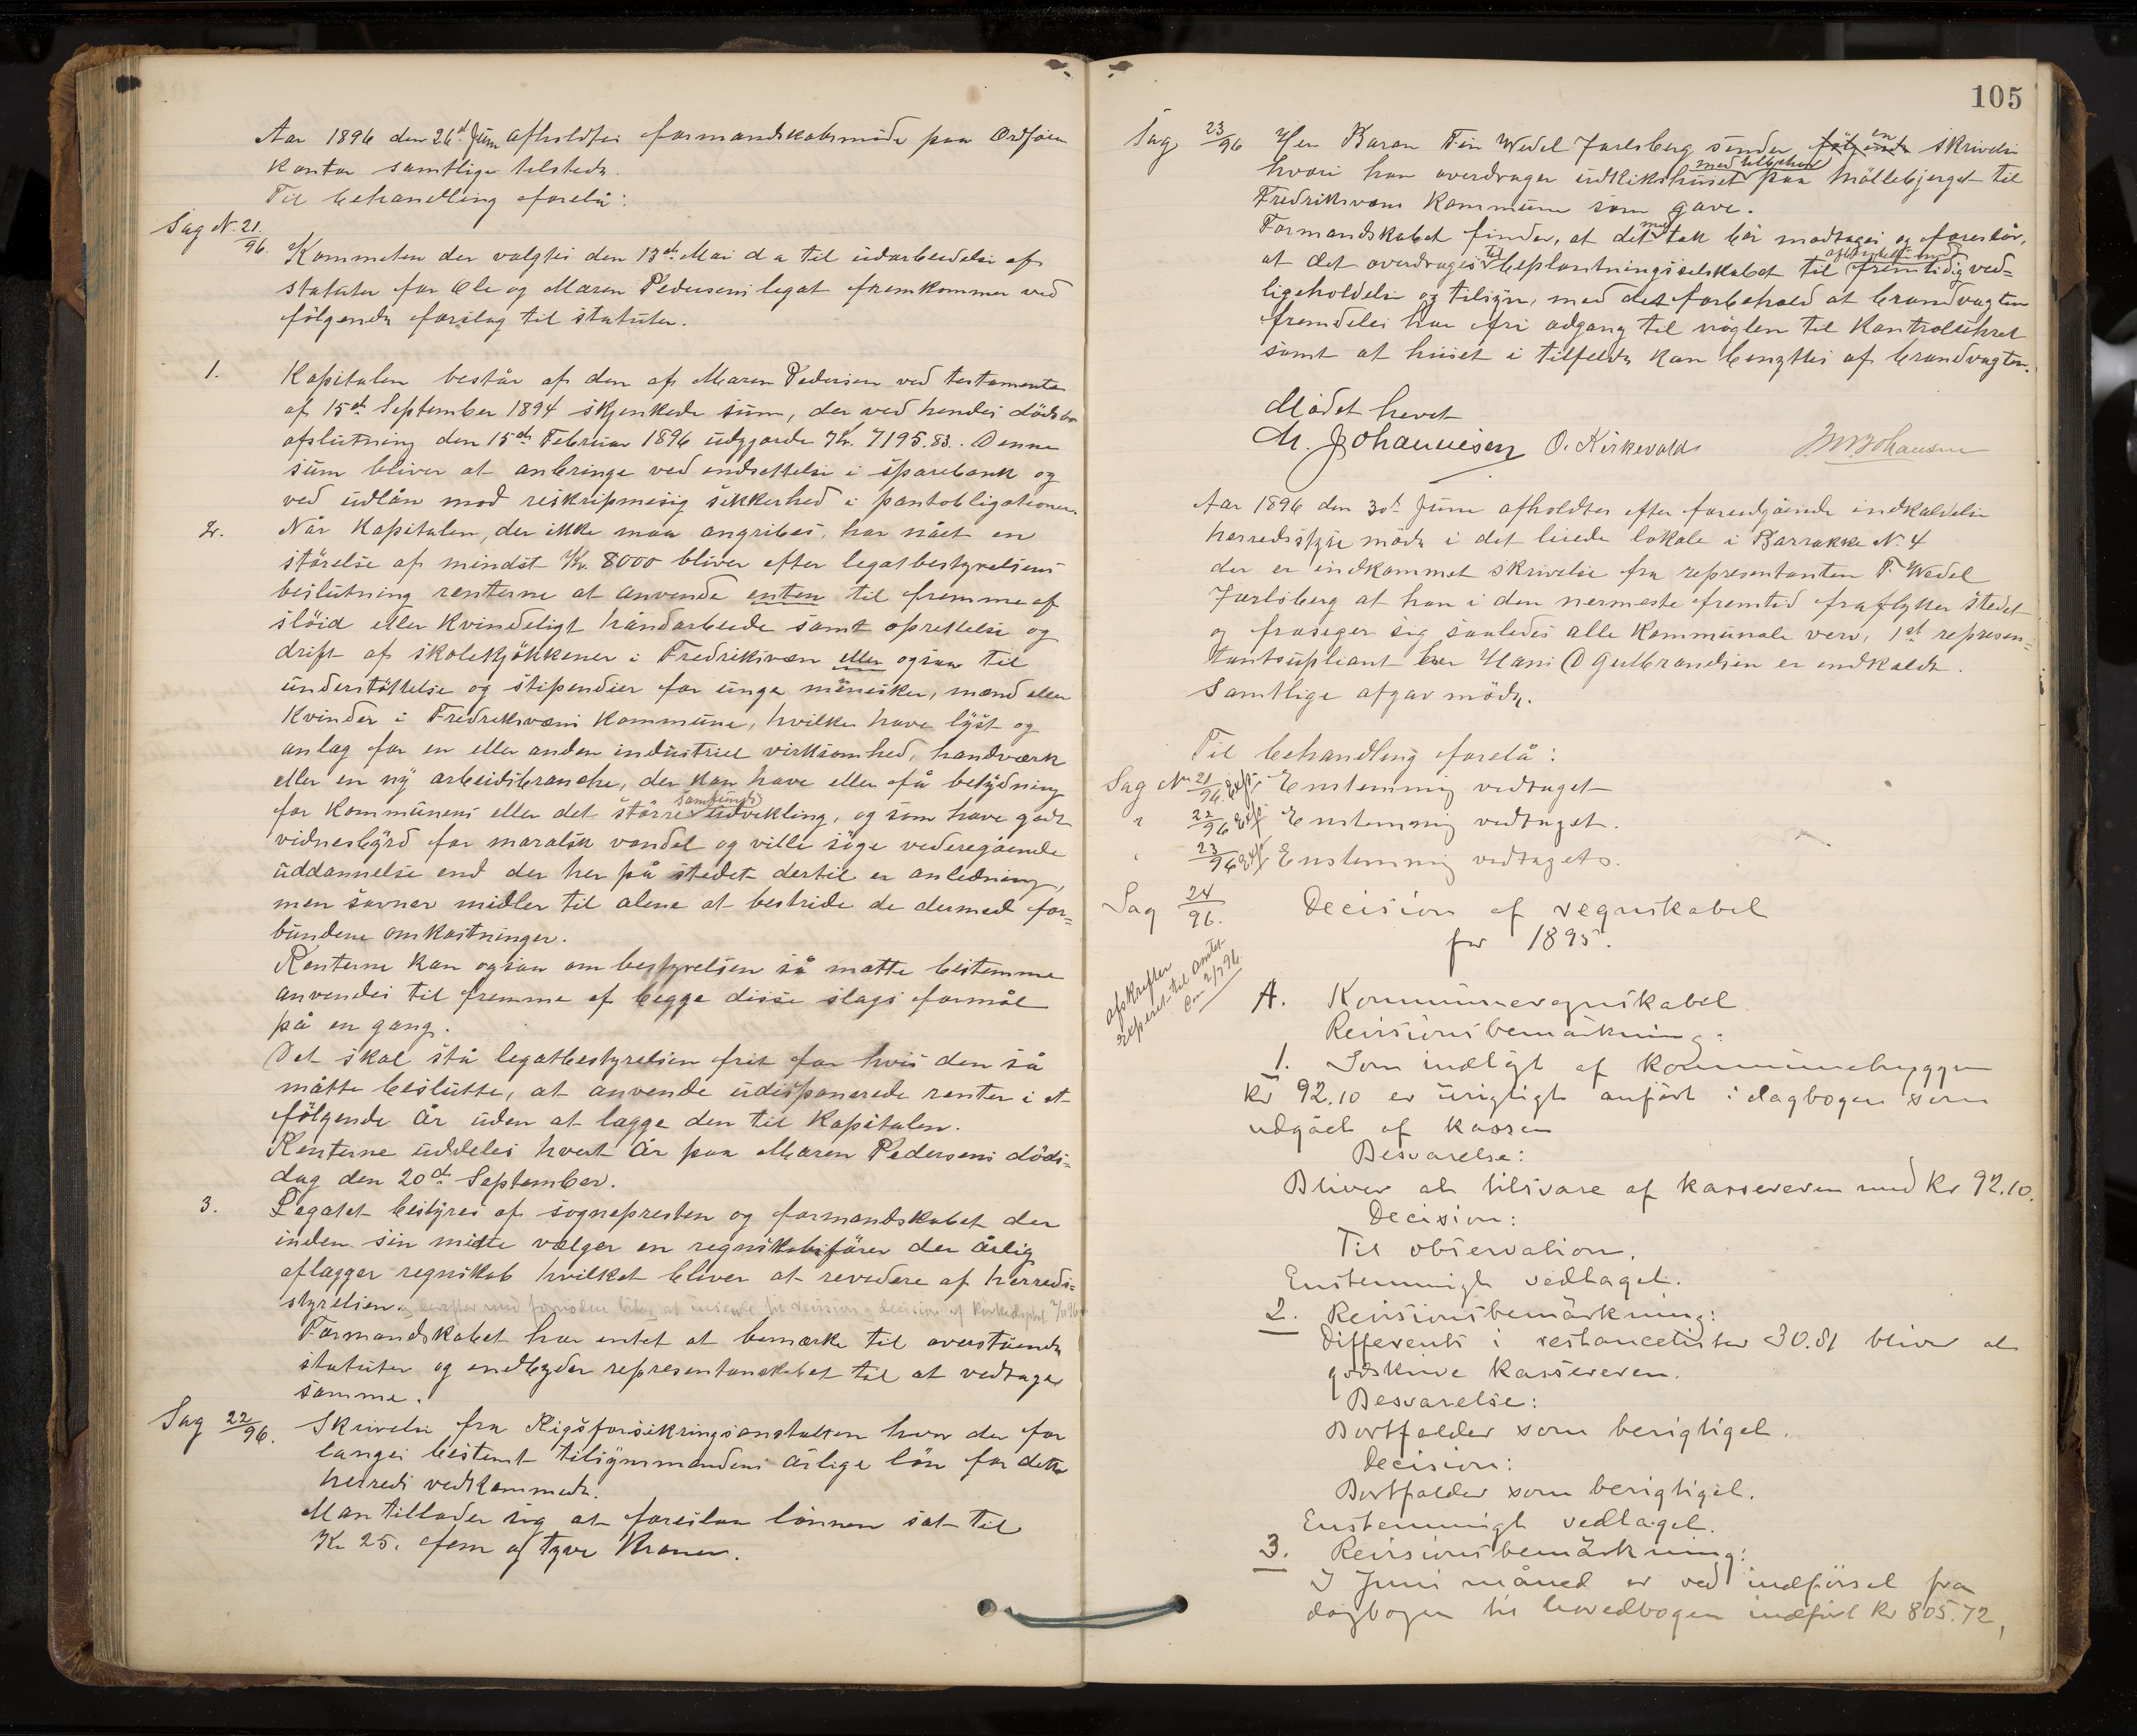 Aar 1896 den 26de Juni afholdtes formandskabsmøde paa Ordføre
kontor samtlige tilstede.
Til behandling forelå:
Sag N. 21/96. Kommeten der valgtes den 13de Mai d a til udarbeidelse af
statuter for Ole og Maren Pedersens legat fremkommer ved
følgende forslag til statuter.
1. Kapitalen består af den af Maren Pedersen ved testamente
af 15de September 1894 skjenkede sum, der ved hendes dødsbo
afslutning den 15de Februar 1896 udgjorde Kr. 7195.83. Denne
sum bliver at anbringe ved indsettelse i sparebank og
ved udlån mod reskripmesig sikkerhed i pantobligationer.
2. Når Kapitalen, der ikke maa angribes, har nået en
størelse af mindst Kr. 8000 bliver efter legatbestyrelsens
beslutning renterne at anvende enten til fremme af
sløid eller kvindeligt håndarbeide samt oprettelse og
drift af skolekjøkkener i Fredriksværn eller ogsaa til
understøttelse og stipendier for unge mennesker, mænd eller
kvinder i Fredriksværns kommune, hvilke have lyst og
anlæg for en eller anden industriel virksomhed, handværk
eller en ny arbeidsbranche, der kan have eller få betydning
for kommunens eller det større samfunds udvekling, og som have godt
vidnesbyrd for moralsk vandel og ville søge videregående
uddannelse end der her på stedet dertil er anledning,
men savner midler til alene at bestride de dermed for=
bundene omkostninger.
Renterne kan ogsaa om bestyrelsen så måtte bestemme
anvendes til fremme af begge disse slags formål
på en gang.
Det skal stå legatbestyrelsen frit for hvis den så
måtte beslutte, at anvende udisponerede renter i et
følgende år uden at lægge den til Kapitalen.
Renterne uddeles hvert år paa Maren Pedersens døds=
dag den 20de September.
3. Legatet bestyres af sognepresten og formandskabet der
inden sin midte vælger en regnskabsfører der årlig
aflægger regnskab hvilket bliver at revidere af herreds=
styrelsen.
Formandskabet har intet at bemærke til overstående
statuter og indbyder representanskabet til at vedtage
samme.
Sag 22/96. Skrivelse fra Rigsforsikringsanstalten hvor der for
langes bestemt tilsynsmandens årlige løn for dette
herreds vedkommede.
Man tillader sig at foreslaa lønnen sat til
Kr 25. fem og tyve Kroner.
105
Sag 23/96 Herr Baron Fin Wedel Jarlsberg sender følgende en skrivelse
hvori han overdrager udkikshuset med tilbehør paa Møllebjerget til
Fredriksværns Kommune som gave.
Formandskabet finder, at det med tak bør modtages og foreslår,
at det overdrages til beplantningsselskabet til fremtidig ved=
ligeholdelse og tilsyn, med det forbehold at brandvagten
fremdeles har fri adgang til nøglen til Kontroluhret
samt at huset i tilfelde kan benyttes af brandvagten.
Mødet hevet
M. Johannesen O. Kirkevold J M Johansen
Aar 1896 den 30te Juni afholdtes efter foreudgående indkaldelse
herredsstyre møde i det leiede lokale i Barrakke N. 4
der er indkommet skrivelse fra representanten F. Wedel
Jarlsberg at han i den nermeste fremtid fraflytter stedet
og frasiger sig saaledes alle kommunale verv, 1ste represen=
tantsupliant herr Hans O Gulbrandsen er indkaldt.
Samtlige afgav møde.
Til behandling forelå:
Sag Nr 21/96. Exp. Enstemmig vedtaget
" 22/96 Exp Enstemmig vedtaget.
" 23/96 Exp Enstemmig vedtaget.
Sag 24/96. Decision af regnskabet
for 1895.
afskrifter
experet til amtet
den 2/7 96.
A. Kommuneregnskabet
Revisionsbemærkning:
1. Som indlagt af kommunebryggen
kr 92.10 er urigtigt anført i dagbogen som
udgået af kassen
Besvarelse:
Bliver at tilsvare af kassereren med kr 92.10.
Decision:
Til observation.
Enstemmigt vedtaget.
2. Revisionsbemærkning:
Differents i restancelister 30.81 bliver at
godskrive kassereren.
Besvarelse:
Bortfalder som berigtiget.
Decision:
Bortfalder som berigtiget.
Enstemmigt vedtaget.
3. Revisionsbemærkning:
I Juni måned er ved indførsel fra
dagbogen til hovedbogen indført kr 805.72,